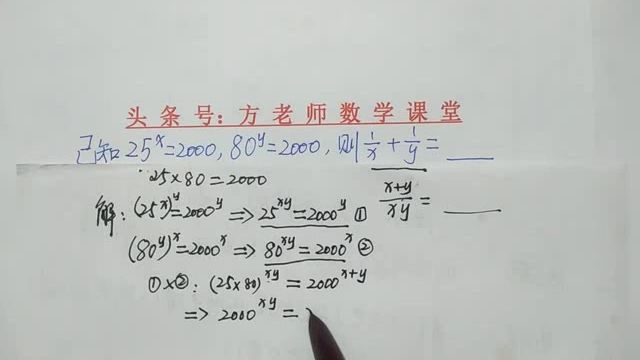 头条号：方老师数学课堂
已知25^x=2000，80^y=2000，则1/x+1/y=____
∵25×80=2000
(x+y)/(xy)=____
解：(25^x)^y=2000^y ⇒ 25^xy=2000^y ①
(80^y)^x=2000^x ⇒ 80^xy=2000^x ②
①×②：(25×80)^xy=2000^x+y
⇒ 2000^xy=